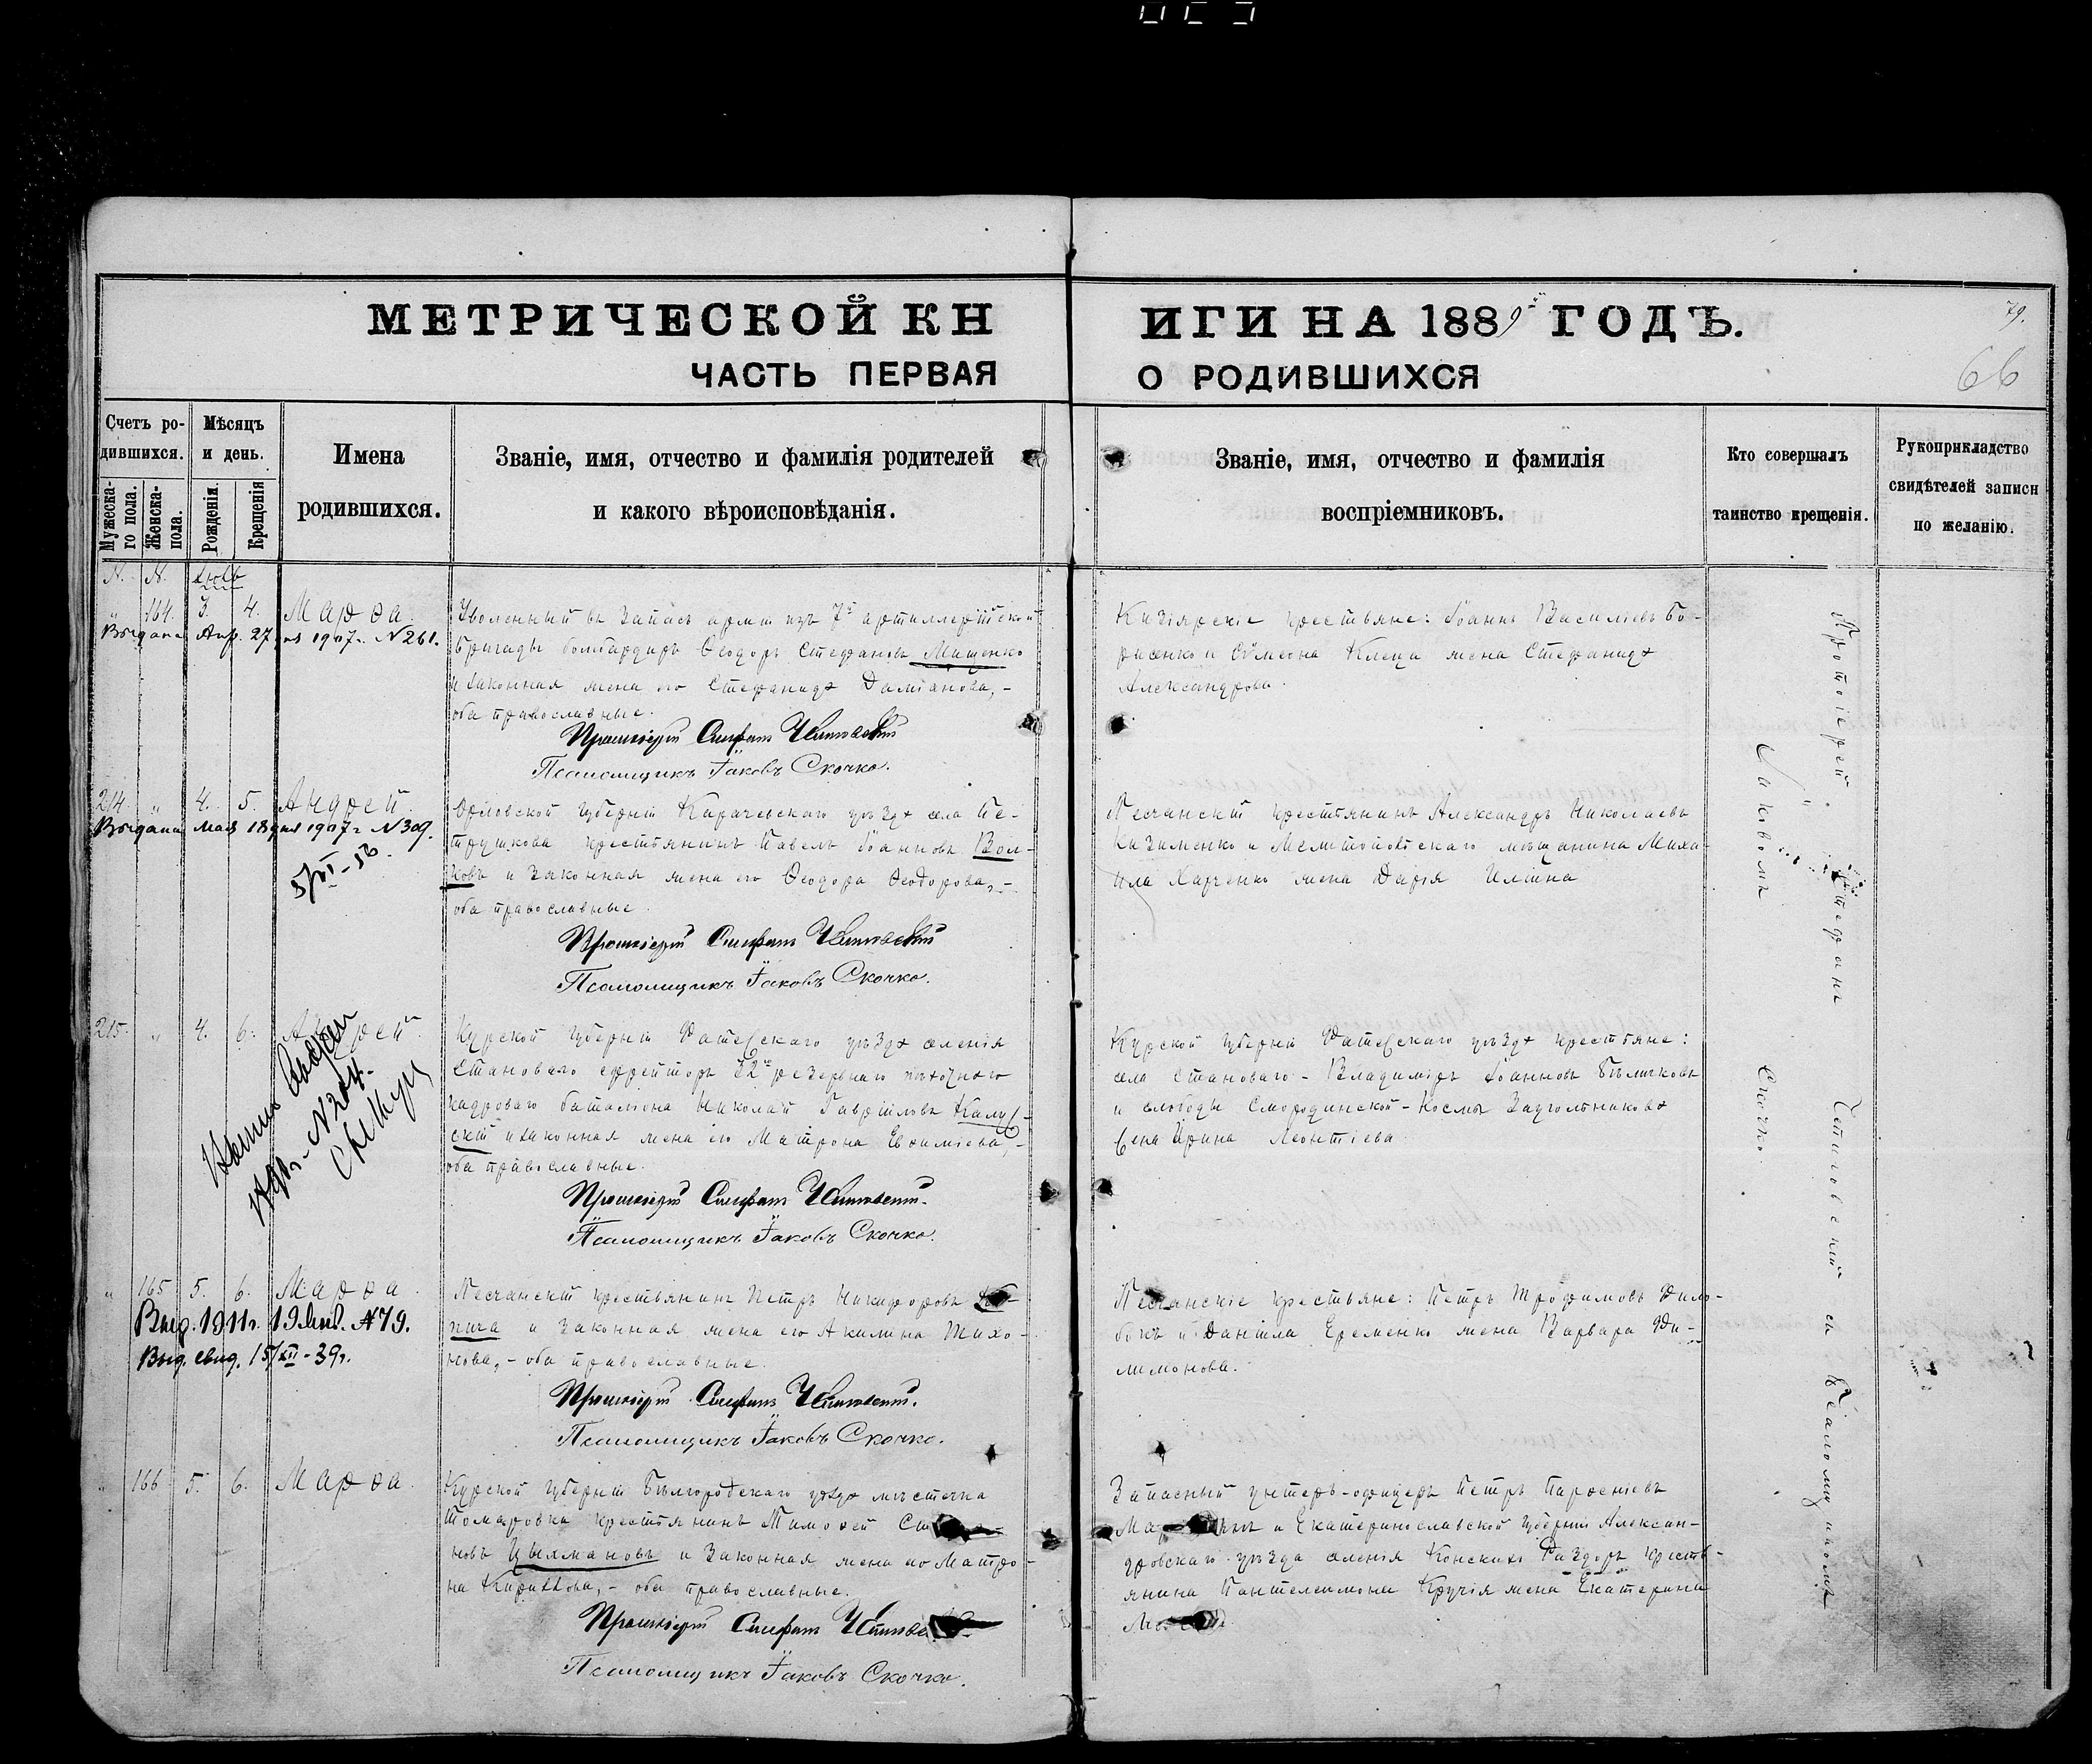 МЕТРИЧЕСКОЙ КНИГИ НА 1889й ГОДЪ.
79.
66
ЧАСТЬ ПЕРВАЯ О РОДИВШИХСЯ
Счетъ родившихся.
Мужескаго пола.
Женска-пола.
Мѣсяцъ и день.
Рожденія.
Крещенія
Имена родившихся.
Званіе, имя, отчество и фамилія родителей
и какого вѣроисповѣданія.
Званіе, имя, отчество и фамилія
воспріемниковъ.
Кто совершалъ
таинство крещенія.
Рукоприкладство
свидѣтелей записи
по желанію.
N. N.
" 164. 3. 4. Марѳа.
Выдана Апр. 27 дня 1907г. N261.
Уволенный въ запасъ арміи изъ 7й артиллерійской
бригады бомбардиръ Ѳеодоръ Стефановъ Мищенко
и законная жена его Стефанида Даміанова, -
оба православные.
Протоіерей Стефанъ
Псаломщикъ Іаковъ Скочко.
Кизіярскіе крестьяне: Іоаннъ Василіевъ Бо-
рисенко и Сѵмеона Клеца жена Стефанида
Александрова.
214. " 4. 5. Андрей.
Выдана мая 18 дня 1907г. N309.
Орловской губерніи Карачевскаго уѣзда села Пе-
трушкова крестьянинъ Павелъ Іоанновъ Вол-
ковъ и законная жена его Ѳеодора Ѳеодорова, -
оба православные.
Протоіерей Стефанъ
Псаломщикъ Іаковъ Скочко.
Песчанскій крестьянинъ Александръ Николаевъ
Кизименко и Мелитопольскаго мѣщанина Миха-
ила Харченко жена Дарія Иліина
215. " 4. 6. Андрей.
N204.
Курской губерніи Фатежскаго уѣзда селенія
Становаго ефрейторъ 52го резервнаго пѣхотнаго
кадроваго баталіона Николай Гавріиловъ Калуж-
скій и законная жена его Матрона Евѳиміева, -
оба православные.
Протоіерей Стефанъ
Псаломщикъ Іаковъ Скочко.
Курской губерніи Фатежскаго уѣзда крестьяне:
села Становаго - Владиміръ Іоанновъ Бѣличковъ
и слободы Смородинской - Космы Заугольникова
жена Ирина Леонтіева.
" 165 5. 6. Марѳа.
Выд. 1911г. 19 Янв. N79.
Выд. свид. 15/XII-39г.
Песчанскій крестьянинъ Петръ Никифоровъ
и законная жена его Акилина Тихо-
нова, - оба православные.
Протоіерей Стефанъ
Псаломщикъ Іаковъ Скочко.
Песчанскіе крестьяне: Петръ Трофимовъ
и Даніила Еременко жена Варвара Фи-
лимонова.
" 166 5. 6. Марѳа.
Курской губерніи Бѣлгородскаго уѣзда мѣстечка
Томаровки крестьянинъ Тимоѳей
новъ Цыхмановъ и законная жена его Матро-
на Кириллова, - оба православные.
Протоіерей Стефанъ
Псаломщикъ Іаковъ Скочко.
Запасный унтеръ-офицеръ Петръ Парѳеніевъ
и Екатеринославской губерніи Алексан-
дровскаго уѣзда селенія Конскихъ Раздоръ кресть-
янина Пантелеимона Кручія жена Екатерина
Протоіерей Стефанъ съ псаломщикомъ
Іаковомъ Скочко.